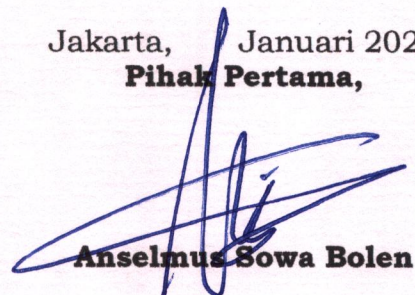 Jakarta, Januari 202
Pihak Pertama,
Anselmus Sowa Bolen